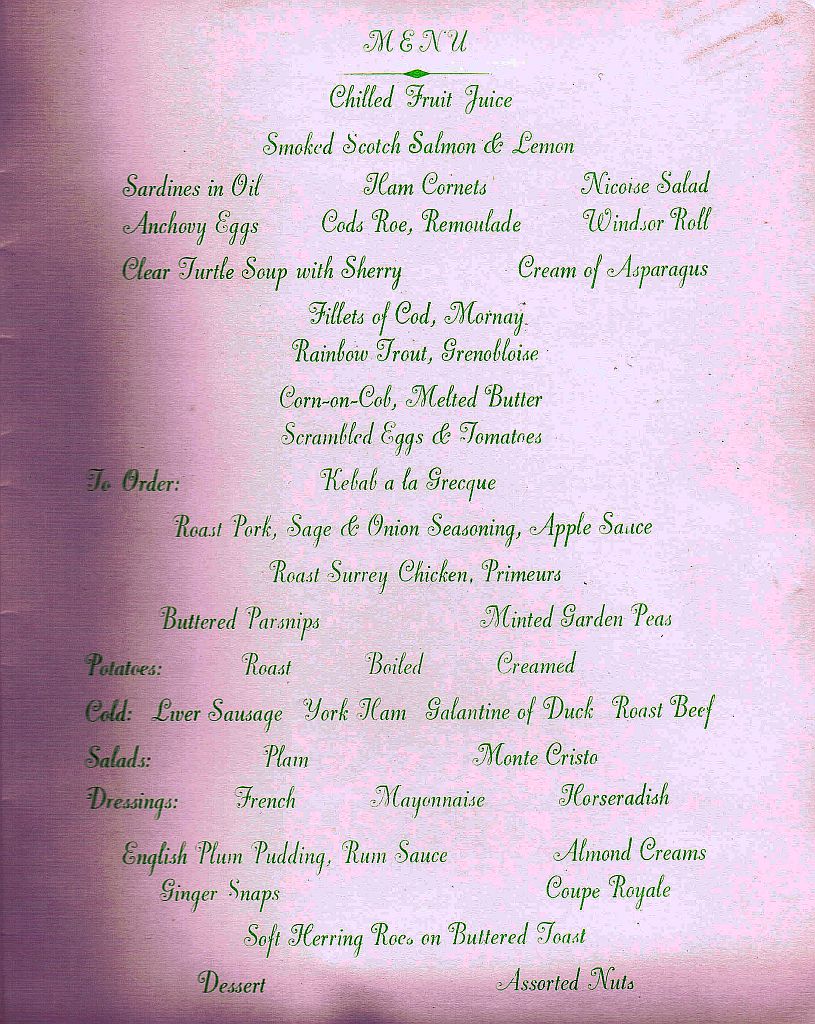 MENU
Chilled Fruit Juice
Smoked Scotch Salmon & Lemon
Sardines in Oil Ham Cornets Nicoise Salad
Anchovy Eggs Cods Roe, Remoulade Windsor Roll
Clear Turtle Soup with Sherry Cream of Asparagus
Fillets of Cod, Mornay
Rainbow Trout, Grenobloise
Corn-on-Cob, Melted Butter
Scrambled Eggs & Tomatoes
To Order: Kebab a la Grecque
Roast Pork, Sage & Onion Seasoning, Apple Sauce
Roast Surrey Chicken, Primeurs
Buttered Parsnips Minted Garden Peas
Potatoes: Roast Boiled Creamed
Cold: Liver Sausage York Ham Galantine of Duck Roast Beef
Salads: Plain Monte Cristo
Dressings: French Mayonnaise Horseradish
English Plum Pudding, Rum Sauce Almond Creams
Ginger Snaps Coupe Royale
Soft Herring Roes on Buttered Toast
Dessert Assorted Nuts